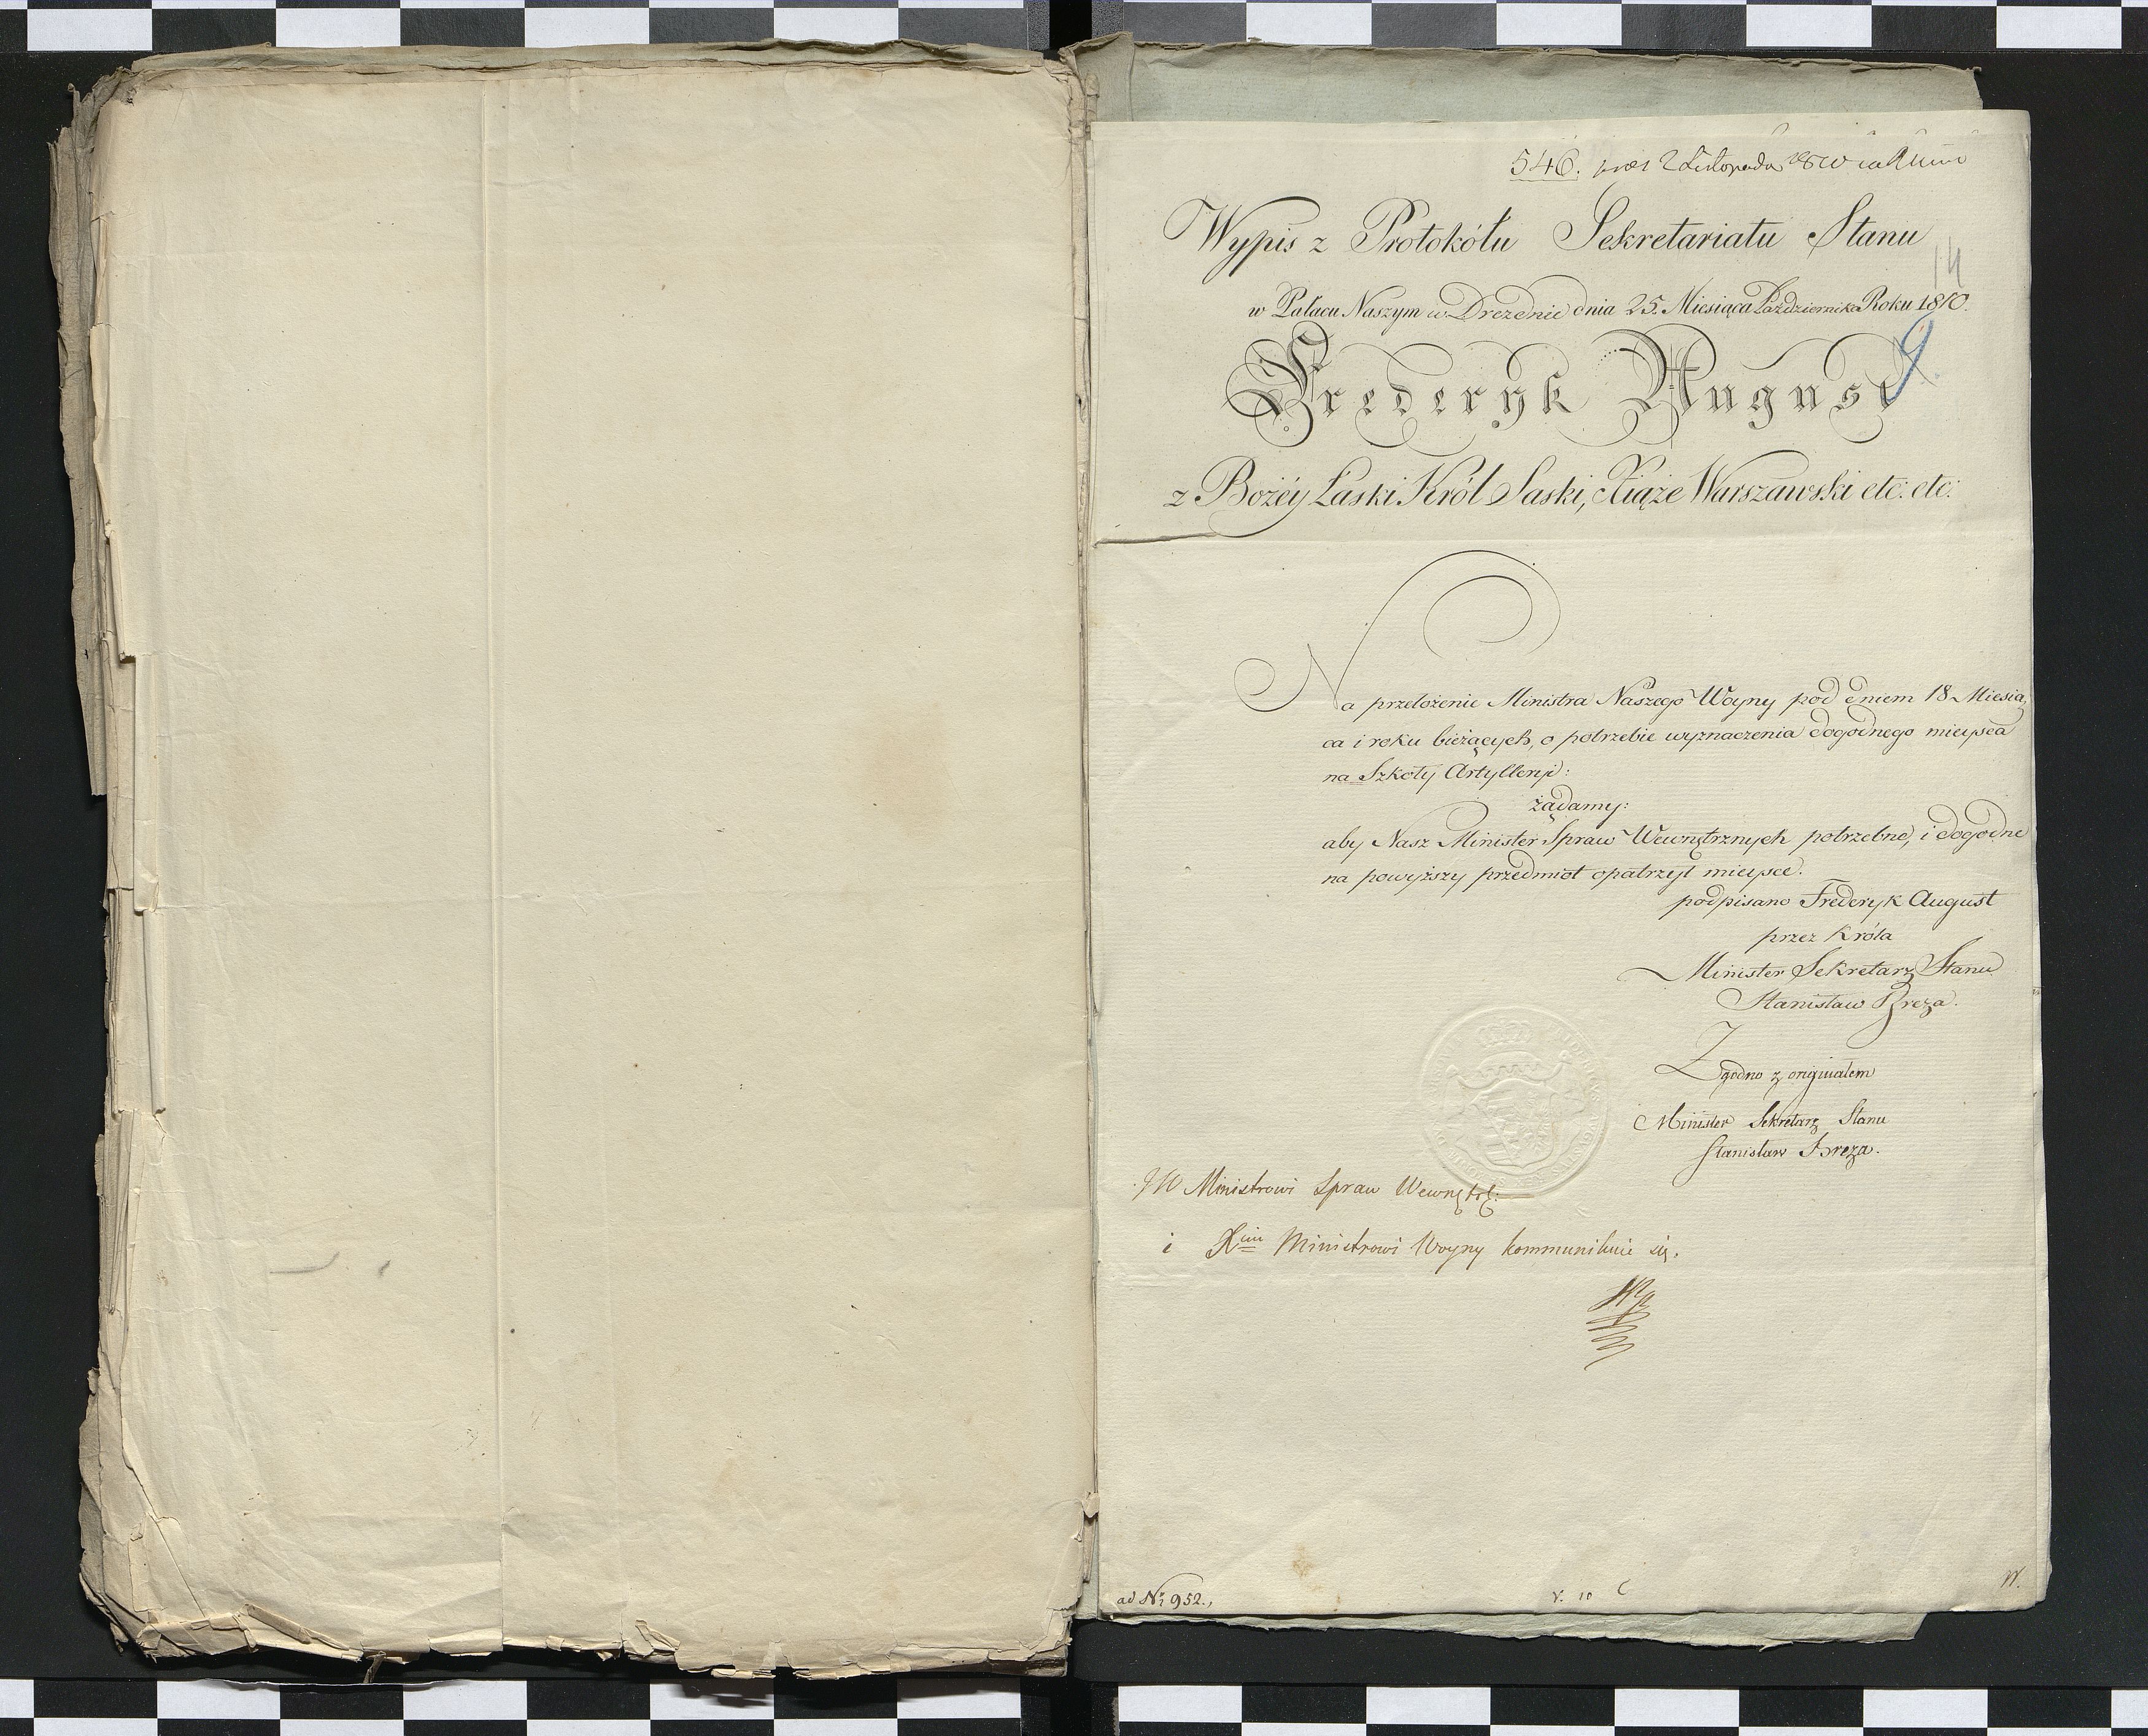 546. 2 Listopada
Wypis z Protokółu Sekretariatu Stanu
14
w Pałacu Naszym w Dreznie dnia 25. Miesiąca Października Roku 1810.
9
Frederyk August
z Bożéy Łaski Król Saski, Xiąże Warszawski etc: etc:
Na przełożenie Ministra Naszego Woyny pod dniem 18 Miesią,
ca i roku bieżących, o potrzebie wyznaczenia dogodnego mieysca
na Szkoły Artylleryi:
żądamy:
aby Nasz Minister Spraw Wewnętrznych potrzebne, i dogodne
na powyższy przedmiot opatrzył mieysce.
podpisano Frederyk August
przez Króla
Minister Sekretarz Stanu
Stanisław Breza.
Zgodno z originałem
Minister Sekretarz Stanu
Stanisław Breza.
JW Ministrowi Spraw Wewnętrz:
i Xciu Ministrowi Woyny kommunikuie się.
ad No 952.,
v. 10
W.